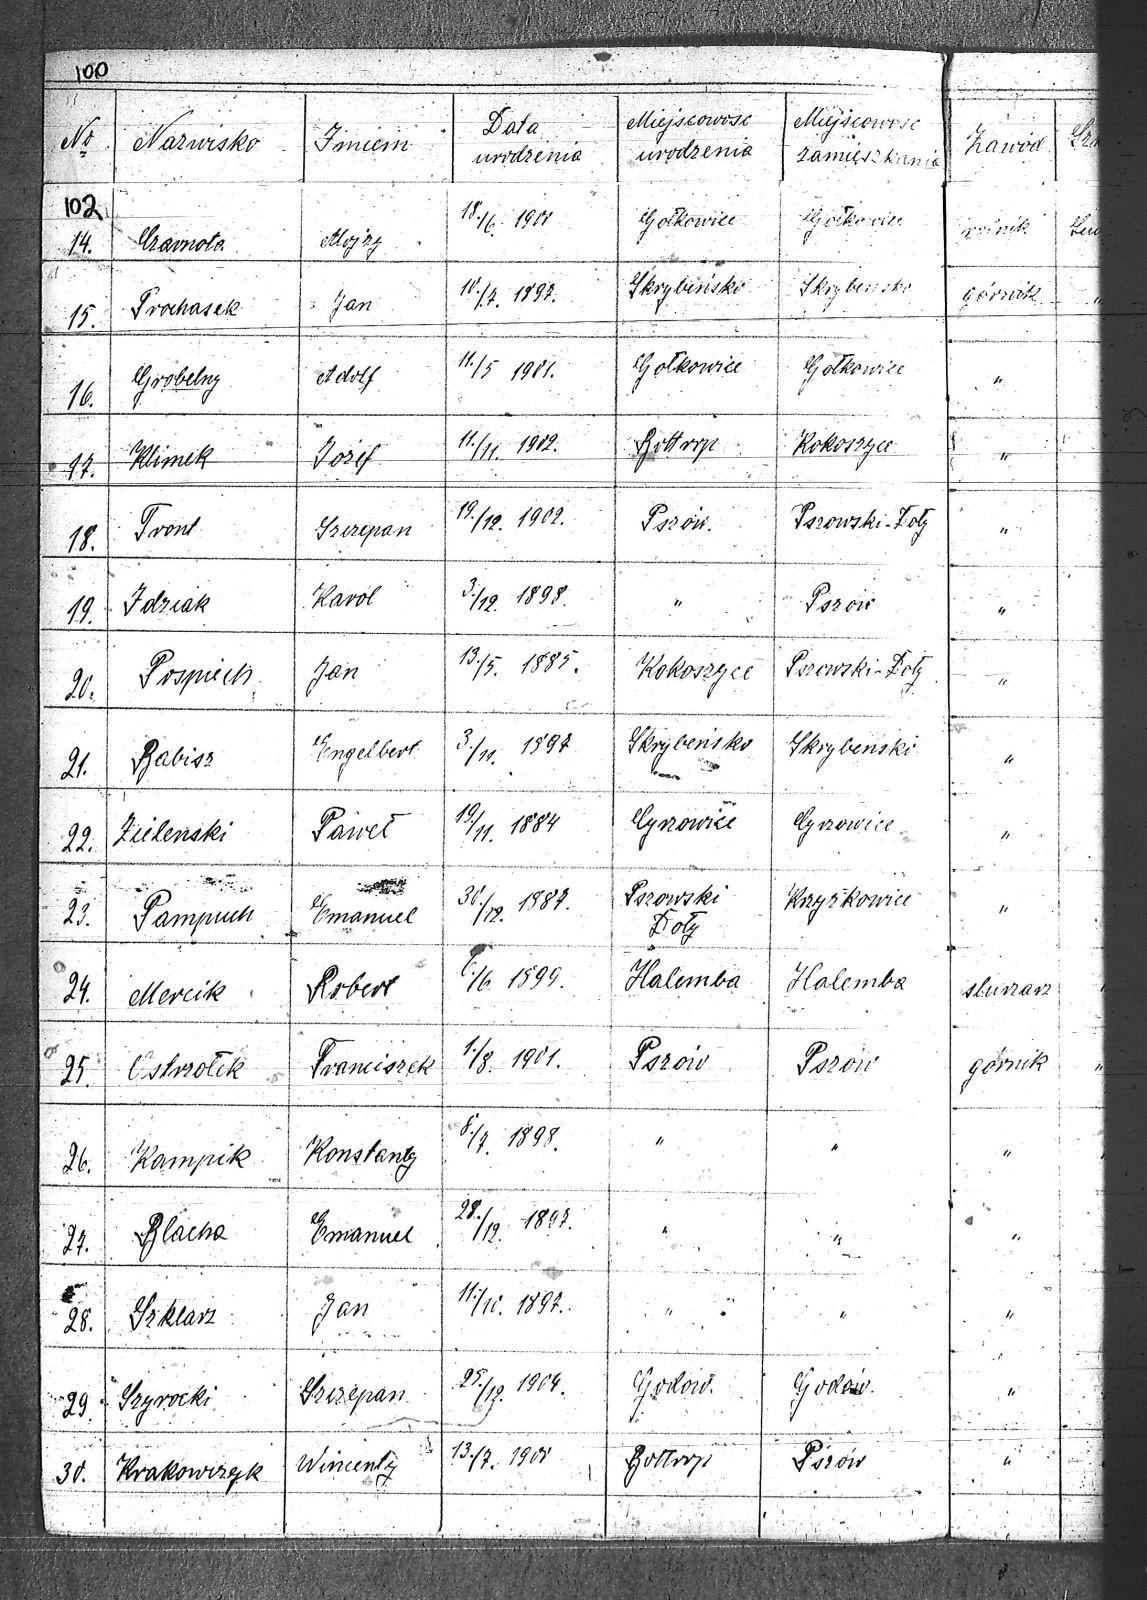 100
No Nazwisko Imiem Data urodzenia Miejscowosc urodzenia Miejscowosc zamieszkania Zawód
102
14. Czarnota Alojzy 18./6. 1901 Gołkowice Gołkowice rolnik
15. Prochasek Jan 10./7. 1897. Skrybeńsko Skrybensko górnik „
16. Grobelny Adolf 11./5 1901. Gołkowice Gołkowice „
17. Klimek Józef 11./11. 1902. Bottrop Kokoszyce „
18. Tront Szczepan 19./12. 1902. Pszów. Pszowski-Doły „
19. Idziak Karol 3./12. 1898. „ Pszów „
20. Pospiech Jan 13./5. 1885. Kokoszyce Pszowski-Doły „
21. Babisz Engelbert 3./11. 1897 Skrybeńsko Skrybeńsko „
22. Zielenski Paweł 19/11. 1884 Cyrzowice Cyrzowice „
23. Pampuch Emanuel 30./12. 1887. Pszowski Doły Krzyżkowice „
24. Mercik Robert /6. 1899. Halemba Halemba ślusarz „
25. Ostrzołek Franciszek 1./8. 1901. Pszów Pszów górnik „
26. Kampik Konstanty 8./7. 1898. „ „ „
27. Blacha Emanuel 28./12. 1897. „ „ „
28. Szklarz Jan 11./10. 1897. „ „ „
29. Szyrocki Szczepan 25./12. 1904. Godów. Godów. „
30. Krakowczyk Wincenty 13./7. 1901 Bottrop Pszów „